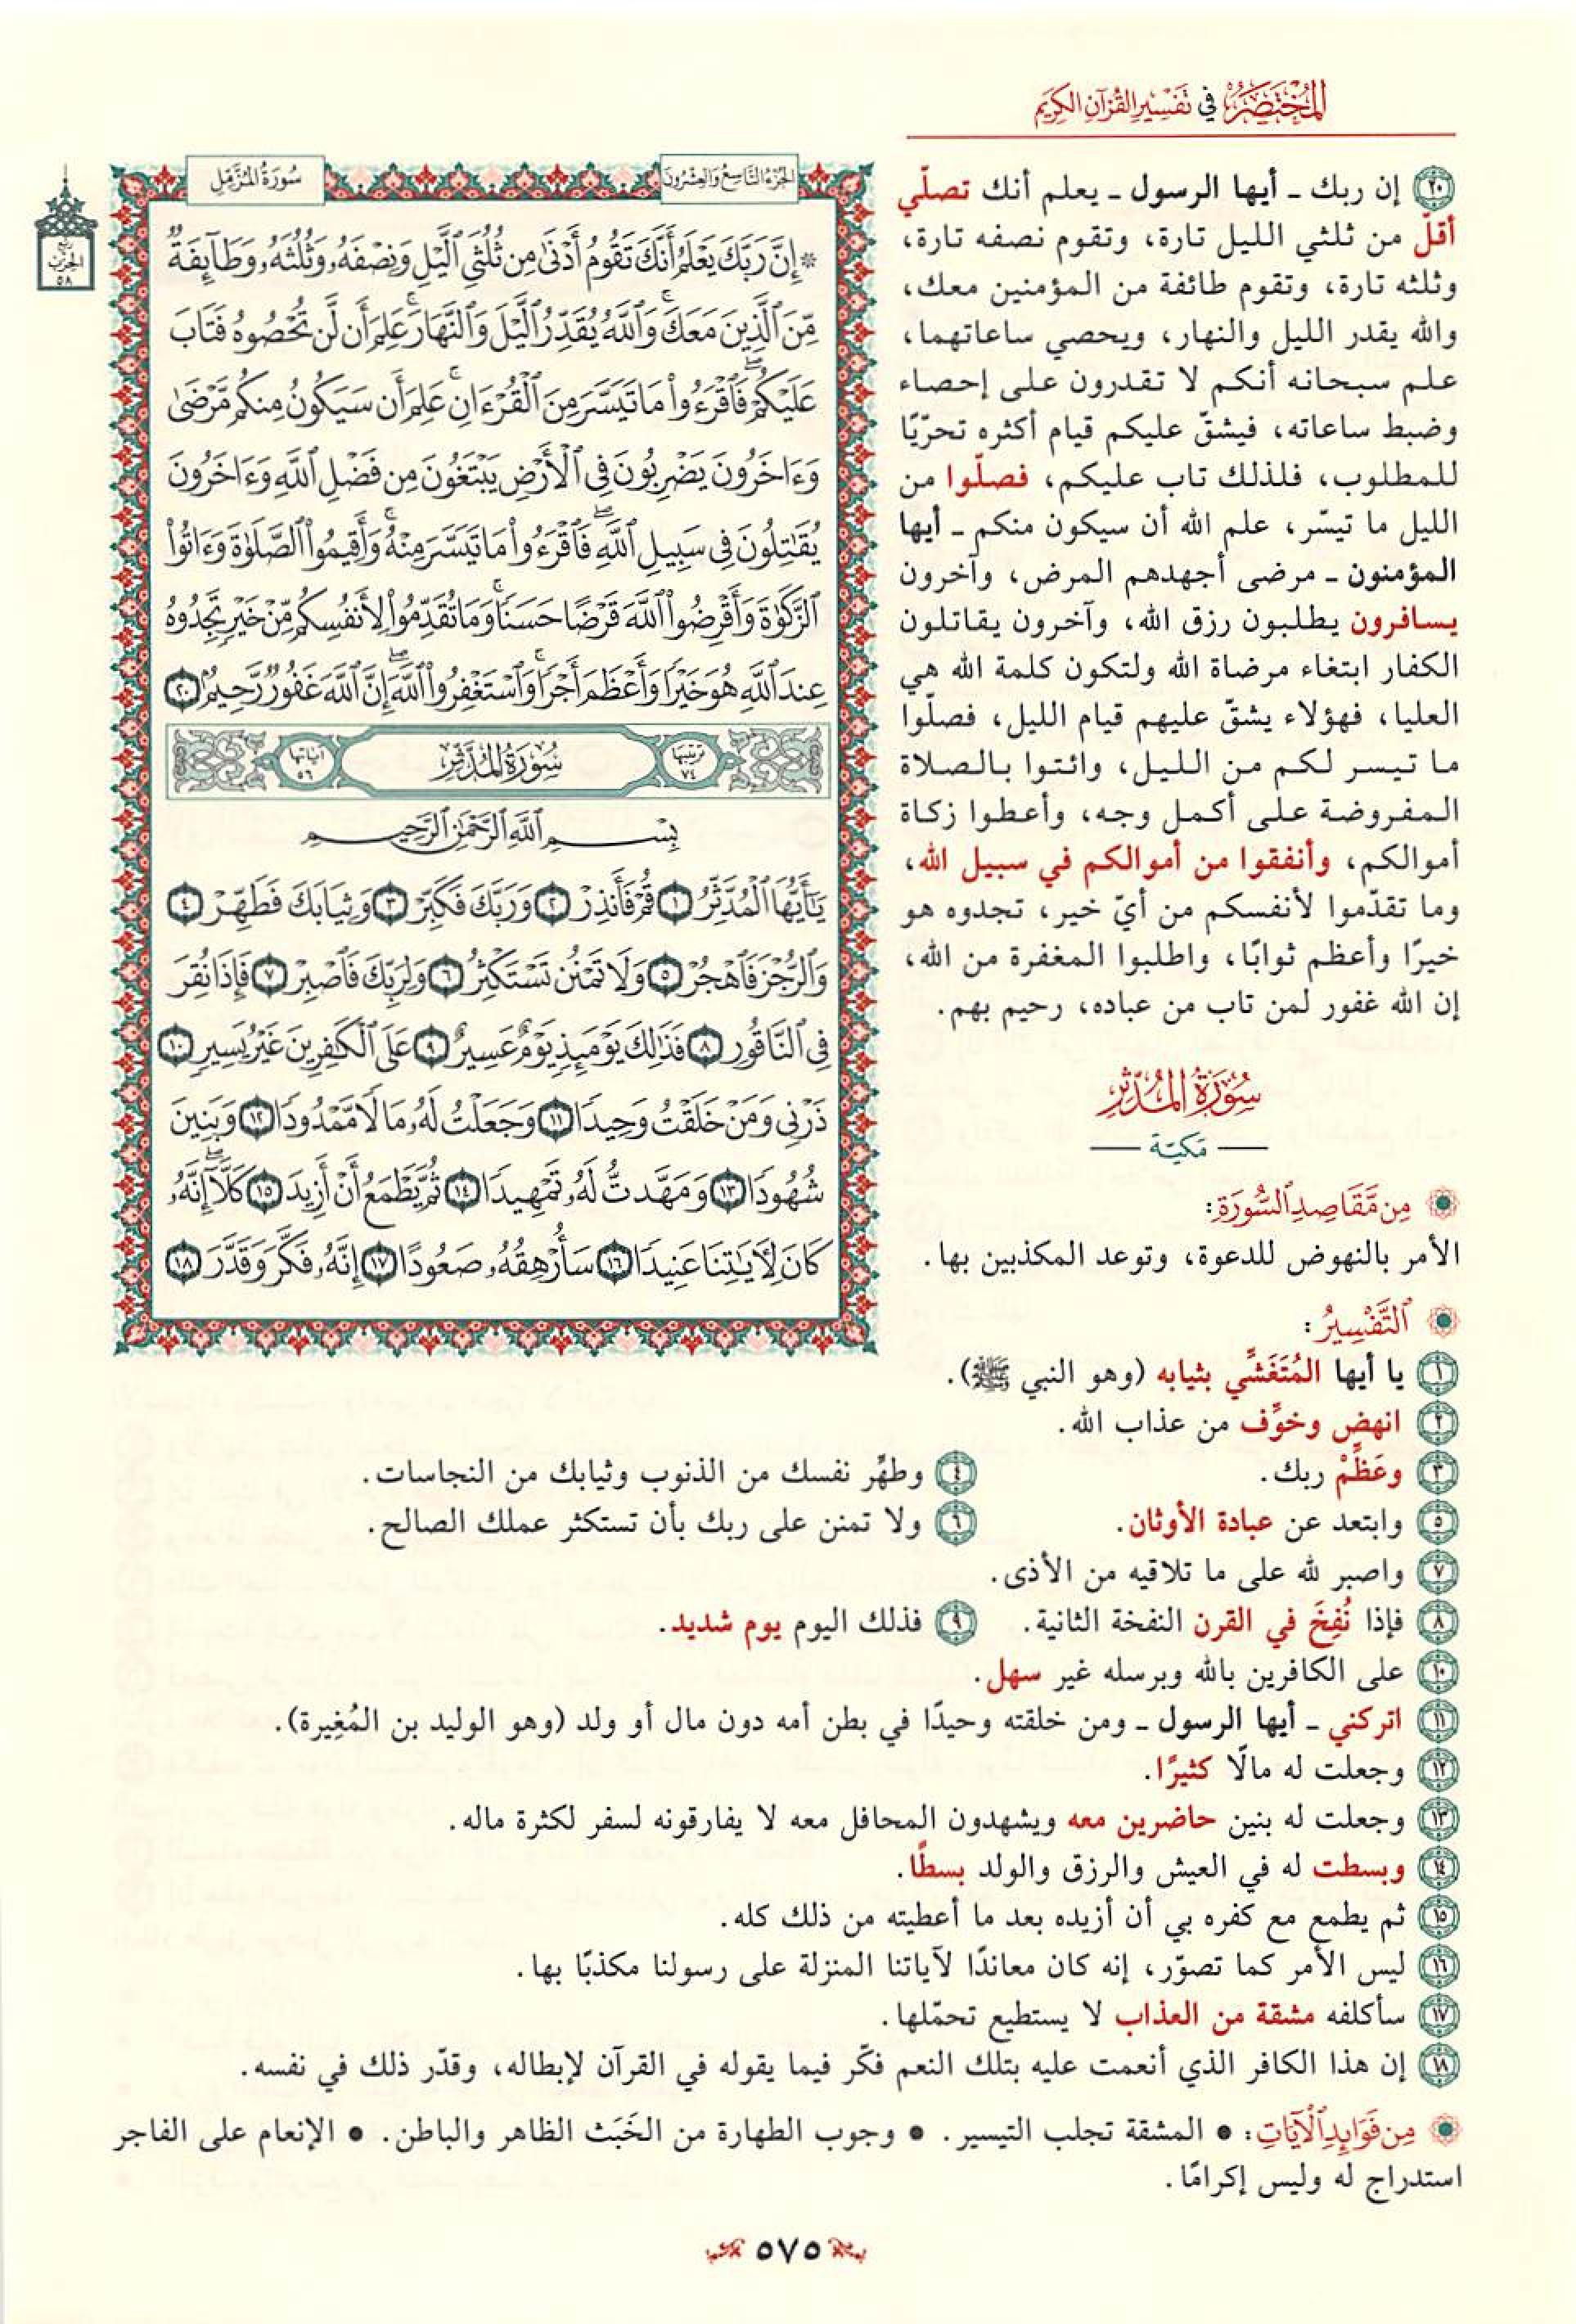 المختصر في تفسير القرآن الكريم
٢٠ إن ربك ـ أيها الرسول ـ يعلم أنك تصلّي
أقلّ من ثلثي الليل تارة، وتقوم نصفه تارة،
وثلثه تارة، وتقوم طائفة من المؤمنين معك،
والله يقدر الليل والنهار، ويحصي ساعاتهما،
علم سبحانه أنكم لا تقدرون على إحصاء
وضبط ساعاته، فيشقّ عليكم قيام أكثره تحرّيًا
للمطلوب، فلذلك تاب عليكم، فصلّوا من
الليل ما تيسّر، علم الله أن سيكون منكم ـ أيها
المؤمنون ـ مرضى أجهدهم المرض، وآخرون
يسافرون يطلبون رزق الله، وآخرون يقاتلون
الكفار ابتغاء مرضاة الله ولتكون كلمة الله هي
العليا، فهؤلاء يشقّ عليهم قيام الليل، فصلّوا
ما تيسر لكم من الليل، وائتوا بالصلاة
المفروضة على أكمل وجه، وأعطوا زكاة
أموالكم، وأنفقوا من أموالكم في سبيل الله،
وما تقدّموا لأنفسكم من أيّ خير، تجدوه هو
خيرًا وأعظم ثوابًا، واطلبوا المغفرة من الله،
إن الله غفور لمن تاب من عباده، رحيم بهم.
الجزء التاسع والعشرون
سورة المزمل
ربع
الحزب
٥٨
۞ إِنَّ رَبَّكَ يَعْلَمُ أَنَّكَ تَقُومُ أَدْنَىٰ مِن ثُلُثَيِ ٱلَّيْلِ وَنِصْفَهُۥ وَثُلُثَهُۥ وَطَآئِفَةٌ
مِّنَ ٱلَّذِينَ مَعَكَۚ وَٱللَّهُ يُقَدِّرُ ٱلَّيْلَ وَٱلنَّهَارَۚ عَلِمَ أَن لَّن تُحْصُوهُ فَتَابَ
عَلَيْكُمْۖ فَٱقْرَءُوا۟ مَا تَيَسَّرَ مِنَ ٱلْقُرْءَانِۚ عَلِمَ أَن سَيَكُونُ مِنكُم مَّرْضَىٰ
وَءَاخَرُونَ يَضْرِبُونَ فِى ٱلْأَرْضِ يَبْتَغُونَ مِن فَضْلِ ٱللَّهِ وَءَاخَرُونَ
يُقَـٰتِلُونَ فِى سَبِيلِ ٱللَّهِۖ فَٱقْرَءُوا۟ مَا تَيَسَّرَ مِنْهُۚ وَأَقِيمُوا۟ ٱلصَّلَوٰةَ وَءَاتُوا۟
ٱلزَّكَوٰةَ وَأَقْرِضُوا۟ ٱللَّهَ قَرْضًا حَسَنًاۚ وَمَا تُقَدِّمُوا۟ لِأَنفُسِكُم مِّنْ خَيْرٍ تَجِدُوهُ
عِندَ ٱللَّهِ هُوَ خَيْرًا وَأَعْظَمَ أَجْرًاۚ وَٱسْتَغْفِرُوا۟ ٱللَّهَۖ إِنَّ ٱللَّهَ غَفُورٌ رَّحِيمٌۢ ٢٠
ترتيبها ٧٤ سورة المدثر آياتها ٥٦
بِسْمِ ٱللَّهِ ٱلرَّحْمَـٰنِ ٱلرَّحِيمِ
يَـٰٓأَيُّهَا ٱلْمُدَّثِّرُ ١ قُمْ فَأَنذِرْ ٢ وَرَبَّكَ فَكَبِّرْ ٣ وَثِيَابَكَ فَطَهِّرْ ٤
وَٱلرُّجْزَ فَٱهْجُرْ ٥ وَلَا تَمْنُن تَسْتَكْثِرُ ٦ وَلِرَبِّكَ فَٱصْبِرْ ٧ فَإِذَا نُقِرَ
فِى ٱلنَّاقُورِ ٨ فَذَٰلِكَ يَوْمَئِذٍ يَوْمٌ عَسِيرٌ ٩ عَلَى ٱلْكَـٰفِرِينَ غَيْرُ يَسِيرٍ ١٠
ذَرْنِى وَمَنْ خَلَقْتُ وَحِيدًا ١١ وَجَعَلْتُ لَهُۥ مَالًا مَّمْدُودًا ١٢ وَبَنِينَ
شُهُودًا ١٣ وَمَهَّدتُّ لَهُۥ تَمْهِيدًا ١٤ ثُمَّ يَطْمَعُ أَنْ أَزِيدَ ١٥ كَلَّآۖ إِنَّهُۥ
كَانَ لِـَٔايَـٰتِنَا عَنِيدًا ١٦ سَأُرْهِقُهُۥ صَعُودًا ١٧ إِنَّهُۥ فَكَّرَ وَقَدَّرَ ١٨
سورة المدثر
مكيّة
من مقاصد السورة:
الأمر بالنهوض للدعوة، وتوعد المكذبين بها.
التفسير:
١ يا أيها المُتَغَشِّي بثيابه (وهو النبي ﷺ).
٢ انهض وخوِّف من عذاب الله.
٣ وعَظِّمْ ربك. ٤ وطهِّر نفسك من الذنوب وثيابك من النجاسات.
٥ وابتعد عن عبادة الأوثان. ٦ ولا تمنن على ربك بأن تستكثر عملك الصالح.
٧ واصبر لله على ما تلاقيه من الأذى.
٨ فإذا نُفِخَ في القرن النفخة الثانية. ٩ فذلك اليوم يوم شديد.
١٠ على الكافرين بالله وبرسله غير سهل.
١١ اتركني ـ أيها الرسول ـ ومن خلقته وحيدًا في بطن أمه دون مال أو ولد (وهو الوليد بن المُغِيرة).
١٢ وجعلت له مالًا كثيرًا.
١٣ وجعلت له بنين حاضرين معه ويشهدون المحافل معه لا يفارقونه لسفر لكثرة ماله.
١٤ وبسطت له في العيش والرزق والولد بسطًا.
١٥ ثم يطمع مع كفره بي أن أزيده بعد ما أعطيته من ذلك كله.
١٦ ليس الأمر كما تصوّر، إنه كان معاندًا لآياتنا المنزلة على رسولنا مكذبًا بها.
١٧ سأكلفه مشقة من العذاب لا يستطيع تحمّلها.
١٨ إن هذا الكافر الذي أنعمت عليه بتلك النعم فكّر فيما يقوله في القرآن لإبطاله، وقدّر ذلك في نفسه.
من فوائد الآيات: • المشقة تجلب التيسير. • وجوب الطهارة من الخَبَث الظاهر والباطن. • الإنعام على الفاجر
استدراج له وليس إكرامًا.
٥٧٥